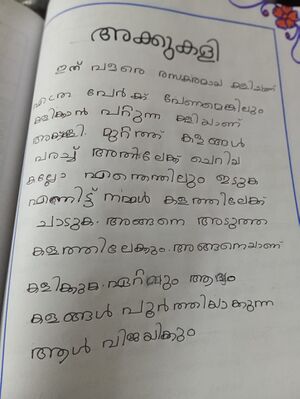 അക്കുകളി
ഇത് വളരെ രസകരമായ കളിയാണ്
എത്ര പേർക്ക് വേണമെങ്കിലും
കളിക്കാൻ പറ്റുന്ന കളിയാണ്
അക്കുകളി. മുറ്റത്ത് കളങ്ങൾ
വരച്ച് അതിലേക്ക് ചെറിയ
കല്ലോ എന്തെങ്കിലും ഇടുക
എന്നിട്ട് നമ്മൾ കളത്തിലേക്ക്
ചാടുക. അങ്ങനെ അടുത്ത
കളത്തിലേക്കും. അങ്ങനെയാണ്
കളിക്കുക. ആദ്യം
കളങ്ങൾ പൂർത്തിയാക്കുന്ന
ആൾ വിജയിക്കും